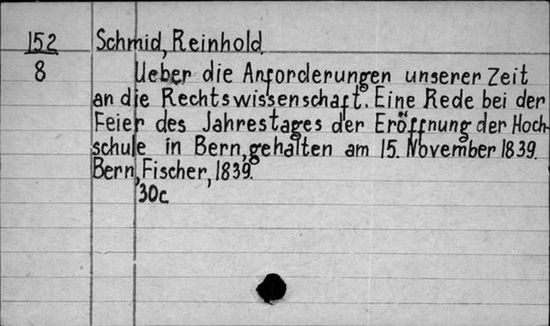 152 Schmid, Reinhold.
8 Ueber die Anforderungen unserer Zeit
an die Rechtswissenschaft. Eine Rede bei der
Feier des Jahrestages der Eröffnung der Hoch-
schule in Bern, gehalten am 15. November 1839.
Bern, Fischer, 1839.
30c